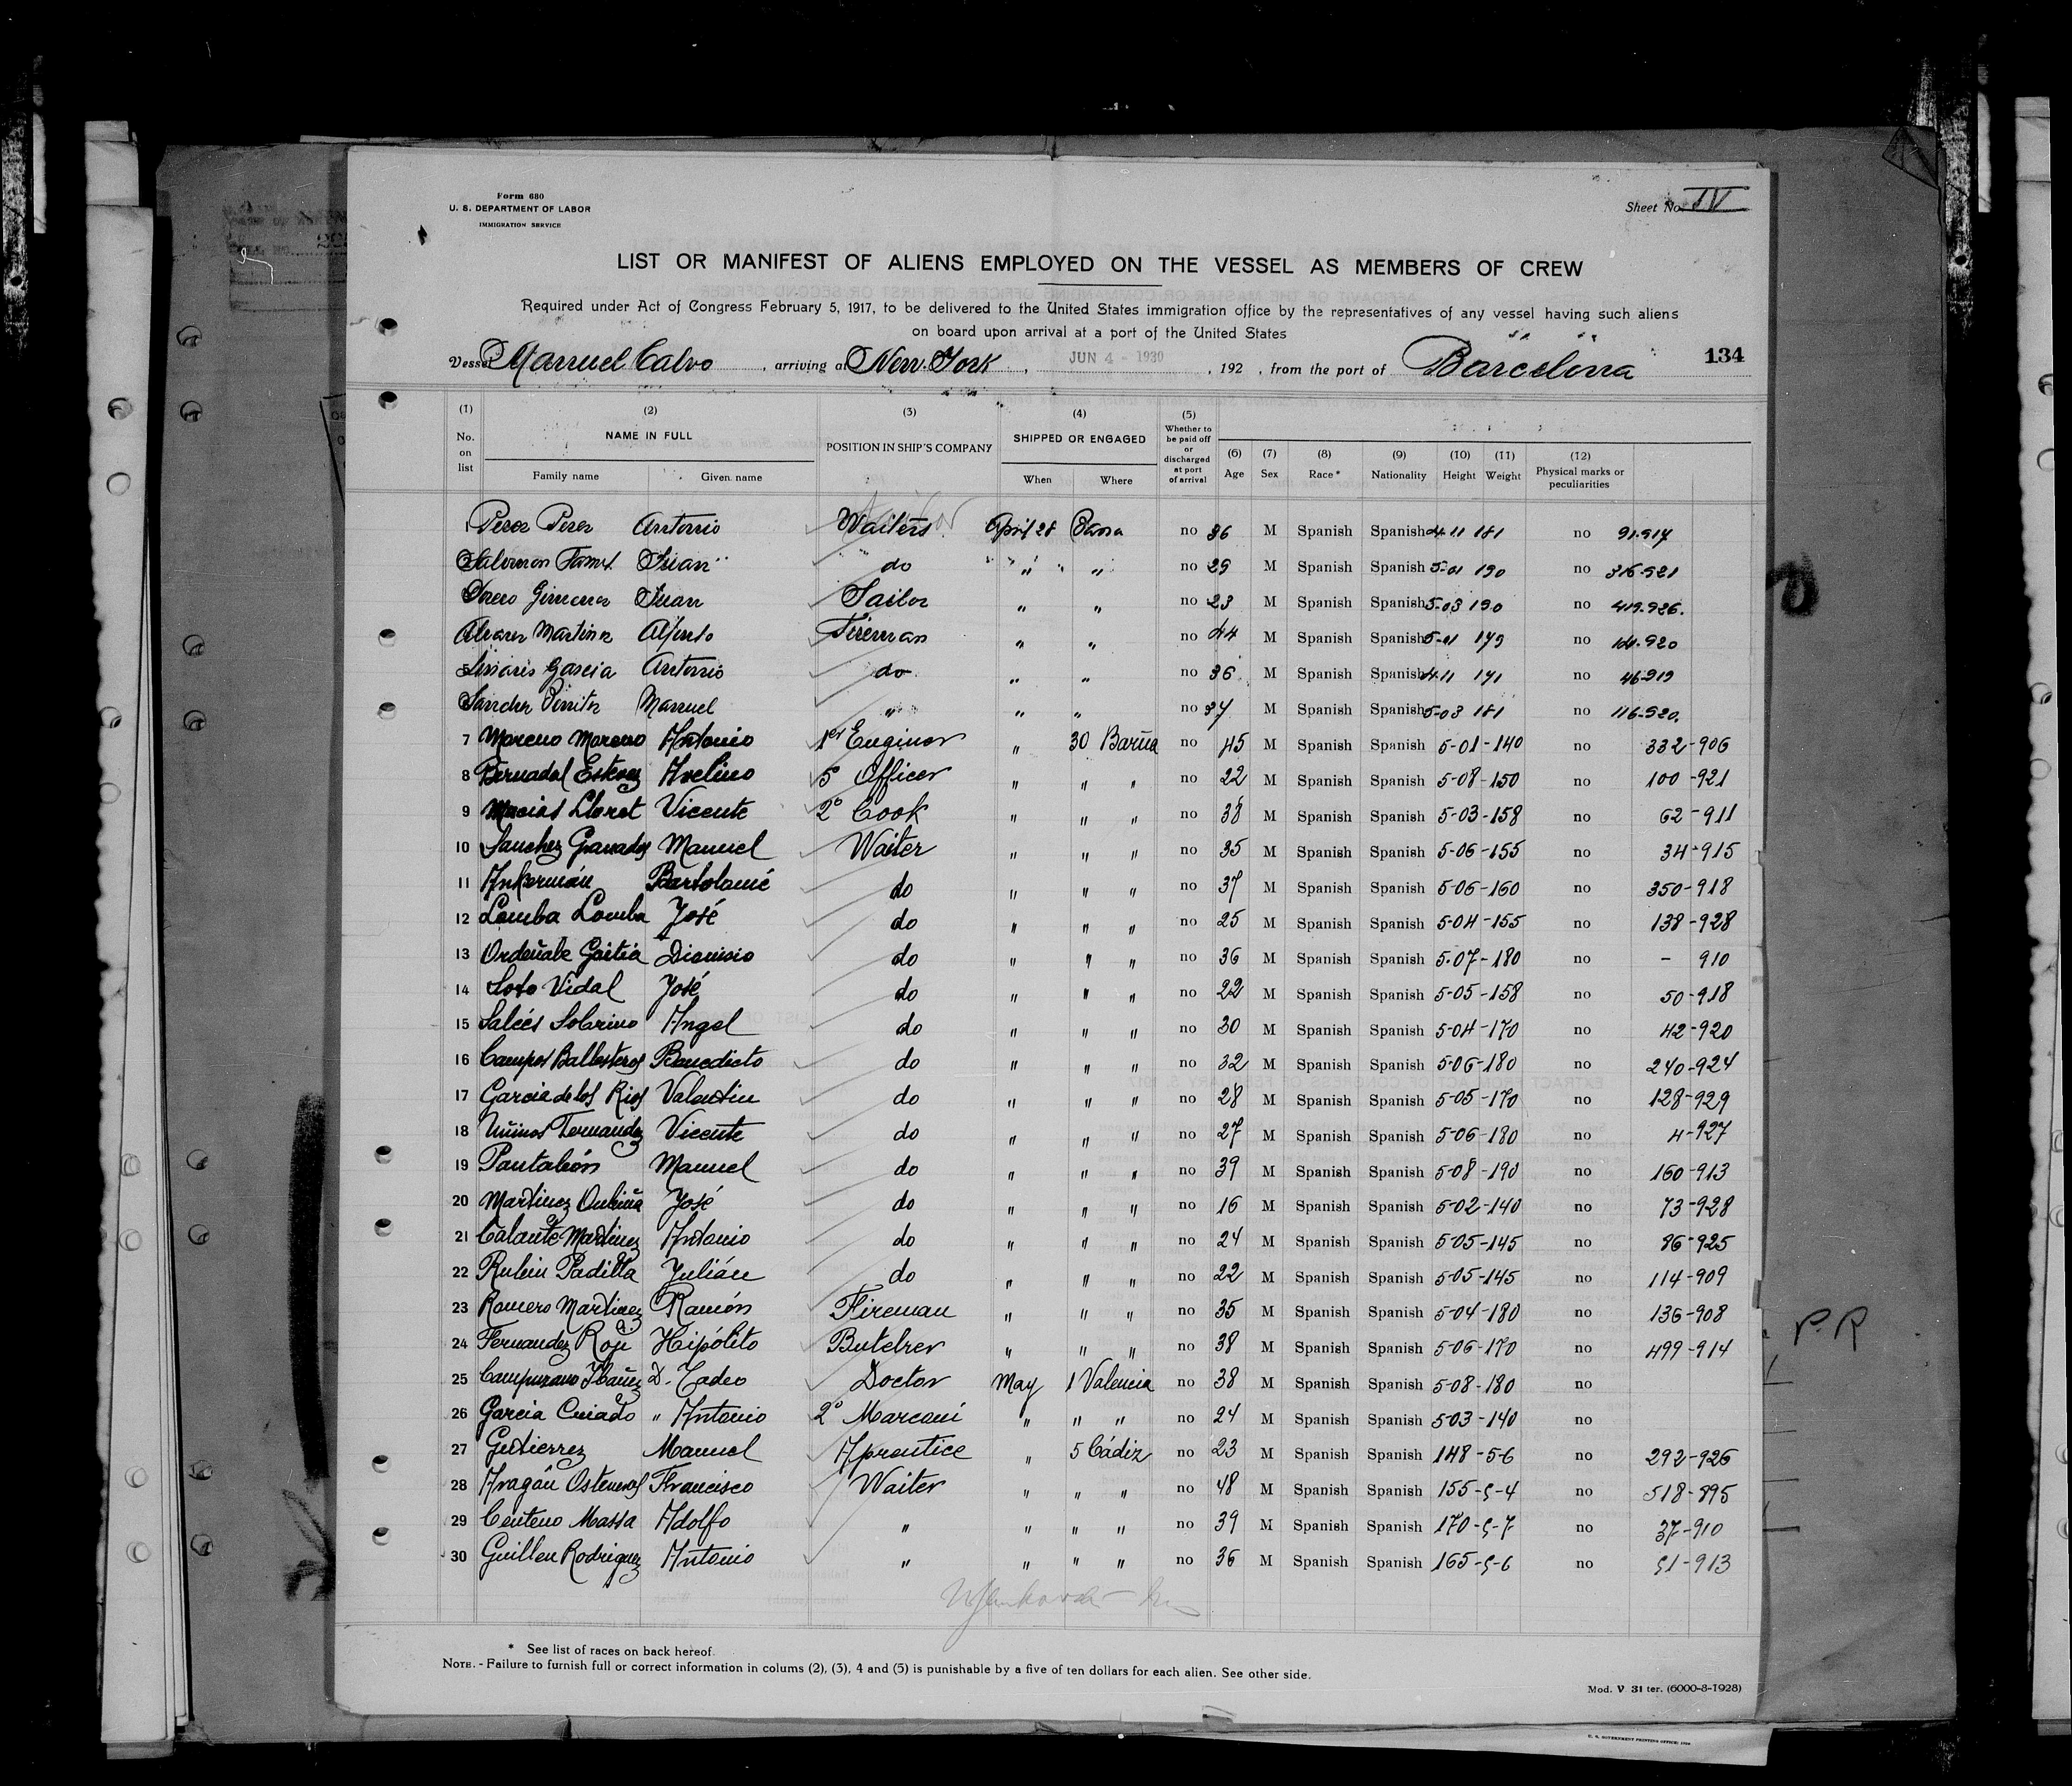 Form 680
U. S. DEPARTMENT OF LABOR
IMMIGRATION SERVICE
Sheet No. IV
LIST OR MANIFEST OF ALIENS EMPLOYED ON THE VESSEL AS MEMBERS OF CREW
Required under Act of Congress February 5, 1917, to be delivered to the United States immigration office by the representatives of any vessel having such aliens
on board upon arrival at a port of the United States
Vessel Manuel Calvo, arriving at New York, JUN 4 - 1930, 192 , from the port of Barcelona 134
(1) No. on list (2) NAME IN FULL Family name Given name (3) POSITION IN SHIP'S COMPANY (4) SHIPPED OR ENGAGED When Where (5) Whether to be paid off or discharged at port of arrival (6) Age (7) Sex (8) Race* (9) Nationality (10) Height (11) Weight (12) Physical marks or peculiarities
1 Perez Perez Antonio Waiters April 28 no 36 M Spanish Spanish 4-11 181 no 91-917
Juan do " " no 29 M Spanish Spanish 5-01 190 no 316-921
Juan Sailor " " no 23 M Spanish Spanish 5-03 190 no 419-926.
Alvarez Martinez Fireman " " no 44 M Spanish Spanish 5-01 179 no 920
5 Garcia Antonio do " " no 36 M Spanish Spanish 4-11 171 no 46-919
Sanchez Manuel " " " no 37 M Spanish Spanish 5-03 181 no 116-920.
7 Moreno Moreno Antonio 1er Enginer " 30 Barña no 45 M Spanish Spanish 5-01-140 no 332-906
8 Bernadal Estevez Avelino 5º Officer " " " no 22 M Spanish Spanish 5-08-150 no 100-921
9 Macias Lloret Vicente 2º Cook " " " no 38 M Spanish Spanish 5-03-158 no 62-911
10 Sanchez Granados Manuel Waiter " " " no 35 M Spanish Spanish 5-06-155 no 34-915
11 Ankermán Bartolomé do " " " no 37 M Spanish Spanish 5-06-160 no 350-918
12 Lomba Lomba José do " " " no 25 M Spanish Spanish 5-04-155 no 138-928
13 Dionisio do " " " no 36 M Spanish Spanish 5-07-180 no - 910
14 Soto Vidal José do " " " no 22 M Spanish Spanish 5-05-158 no 50-918
15 Salcés Sobrino Angel do " " " no 30 M Spanish Spanish 5-04-170 no 42-920
16 Campos Ballesteros Benedicto do " " " no 32 M Spanish Spanish 5-06-180 no 240-924
17 Garcia de los Rios Valentin do " " " no 28 M Spanish Spanish 5-05-170 no 128-929
18 Fernandez Vicente do " " " no 27 M Spanish Spanish 5-06-180 no 4-927
19 Pantaleón Manuel do " " " no 39 M Spanish Spanish 5-08-190 no 160-913
20 Martinez Oubiña José do " " " no 16 M Spanish Spanish 5-02-140 no 73-928
21 Martinez Antonio do " " " no 24 M Spanish Spanish 5-05-145 no 86-925
22 Rubin Padilla Julián do " " " no 22 M Spanish Spanish 5-05-145 no 114-909
23 Romero Martinez Ramón Fireman " " " no 35 M Spanish Spanish 5-04-180 no 136-908
24 Fernandez Hipólito Butcher " " " no 38 M Spanish Spanish 5-06-170 no 499-914
25 Campuzano Ibañez D. Tadeo Doctor May 1 Valencia no 38 M Spanish Spanish 5-08-180 no
26 Garcia Criado " Antonio 2º Marconi " " " no 24 M Spanish Spanish 5-03-140 no
27 Gutierrez Manuel Aprentice " 5 Cádiz no 23 M Spanish Spanish 148-5-6 no 292-926
28 Aragón Francisco Waiter " " " no 48 M Spanish Spanish 155-5-4 no 518-895
29 Centeno Massa Adolfo " " " " no 39 M Spanish Spanish 170-5-7 no 37-910
30 Guillen Rodriguez Antonio " " " " no 36 M Spanish Spanish 165-5-6 no 51-913
P.R
* See list of races on back hereof.
NOTE. - Failure to furnish full or correct information in colums (2), (3), 4 and (5) is punishable by a five of ten dollars for each alien. See other side.
Mod. V 31 ter. (6000-8-1928)
U. S. GOVERNMENT PRINTING OFFICE: